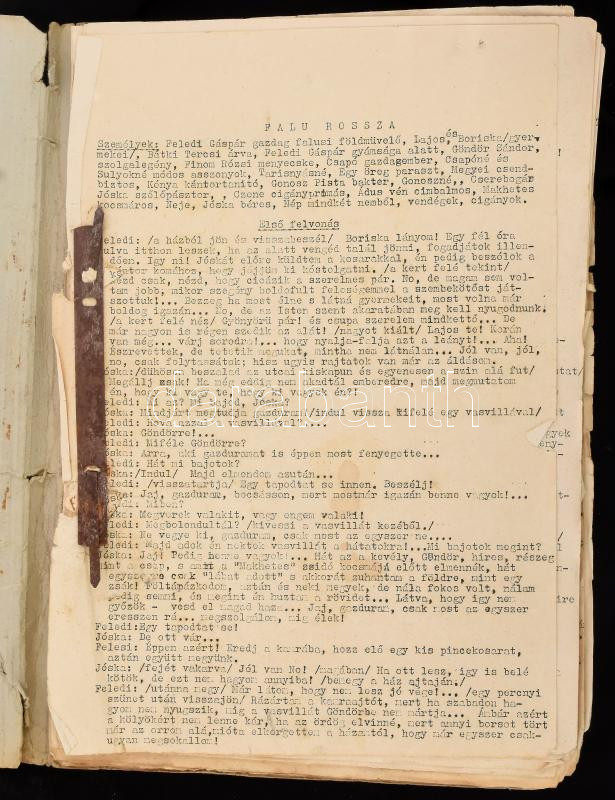 FALU ROSSZA
Személyek: Feledi Gáspár gazdag falusi földmüvelő, Lajos, és Boriska/gyer-
mekei/, Bátki Tercsi árva, Feledi Gáspár gyámsága alatt, Göndör Sándor,
szolgalegény, Finom Rózsi menyecske, Csapó gazdagember, Csapóné és
Sulyokné módos asszonyok, Tarisnyásné, Egy öreg paraszt, Megyei csend-
biztos, Kónya kántortanitó, Gonosz Pista bakter, Gonoszné,, Cserebogár
Jóska szőlőpásztor, , Czene cigányprimás, Ádus vén cimbalmos, Makhetes
kocsmáros, Neje, Jóska béres, Nép mindkét nemből, vendégek, cigányok.
Első felvonás
Feledi: /a házból jön és visszabeszél/ Boriska lányom! Egy fél óra
mulva itthon leszek, ha az alatt vengéd talál jönni, fogadjátok illen-
dően. Igy ni! Jóskát előre küldtem a kosarakkal, én pedig beszólok a
kántor komához, hogy jöjjön ki kóstolgatni. /a kert felé tekint/
Nézd csak, nézd, hogy cicázik a szerelmes pár. No, de magam sem vol-
tam jobb, mikor szegény boldogult feleségemmel a szembekötőst ját-
szottuk!... Bezzeg ha most élne s látná gyermekeit, most volna már
boldog igazán... No, de az Isten szent akaratában meg kell nyugodnunk.
/a kert felé néz/ Gyönyörü pár! és csupa szerelem mindkettő... De
már nagyon is végen szedik az alát! /nagyot kiált/ Lajos te! Korán
van még... várj sorodra!... hogy nyalja-falja azt a leányt!... Aha!
Észrevettek, de tetetik magukat, mintha nem látnálan... Jól van, jól,
no, csak folytassátok; hisz ugyis rajtatok van már az áldásom.
Jóska:/dühösen beszalad az utcai kiskapun és egyenesen a szin alá fut/
Megállj zsik! Ha még eddig nem akadtál emberedre, majd megmutatom
én, hogy ki vagy te, hogy ki vagyok én?!
Feledi: Ki az? Mi bajod, Jóska?
Jóska: Mindjárt megtudja gazduram/indul vissza kifelé egy vasvillával/
Feledi: Hova azzal a vasvillával?...
Jóska: Göndörre!...
Feledi: Miféle Göndörre?
Jóska: Arra, aki gazduramat is éppen most fenyegette...
Feledi: Hát mi bajotok?
Jóska:/Indul/ Majd elmondom azután...
Feledi: /visszatartja/ Egy tapodtat se innen. Beszélj!
Jóska: Jaj, gazduram, bocsásson, mert mostmár igazán benne vagyok!...
Feledi: Miben?
Jóska: Megverek valakit, vagy engem valaki!
Feledi: Megbolondultál? /kiveszi a vasvillát kezéből./
Jóska: Ne vegye ki, gazduram, csak most az egyszer ne....
Feledi: Majd adok én nektek vasvillát a hátatokra!...Mi bajotok megint?
Jóska: Jaj! Pedig benne vagyok!... Hát az a kevély, Göndör, hires, részeg
mint a csap, s amint a "Makhetes" zsidó kocsmája előtt elmennék, hát
egyszerre csak "lábat adott" s akkorát zuhantam a földre, mint egy
zsák! Föltápászkodom, aztán és neki megyek, de nála fokos volt, nálam
pedig semmi, és megint én huztam a rövidet... Látva, hogy igy nem
győzök - vesd el magad haza... Jaj, gazduram, csak most az egyszer
eresszen rá... megszolgálom, mig élek!
Feledi:Egy tapodtat se!
Jóska: De ott vár...
Felesi: Éppen azért! Eredj a kamrába, hozz elő egy kis pincekosarat,
aztán együtt megyünk.
Jóska: /fejét vakarva/ Jól van No! /magában/ Ha ott lesz, igy is belé
kötök, de ezt nem hagyom annyiba! /bemegy a ház ajtaján./
Feledi: /utánna megy/ Már látom, hogy nem lesz jó vége!... /egy percnyi
szünet után visszajön/ Rázártam a kamraajtót, mert ha szabadon ha-
gyom nem nyugszik, mig a vasvillát Göndörbe nem mártja... Ámbár azért
a kölyökért nem lenne kár, ha az ördög elvinné, mert annyi borsot tört
már az orrom alá,mióta elkergettem a házamtól, hogy már egyszer csak-
ugyan megsokallom!